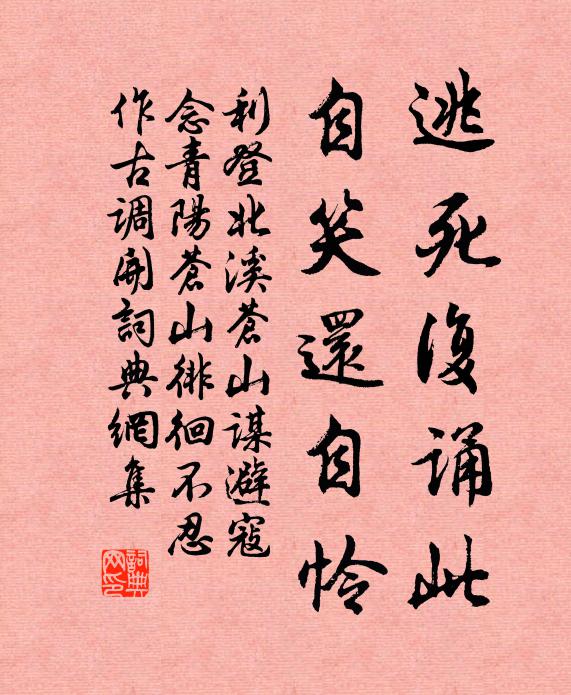 逃死復誦此
自笑還自怜
利登北溪蒼山謀避寇
念青陽蒼山徘徊不忍
作古調開詞典網集
詞典网印